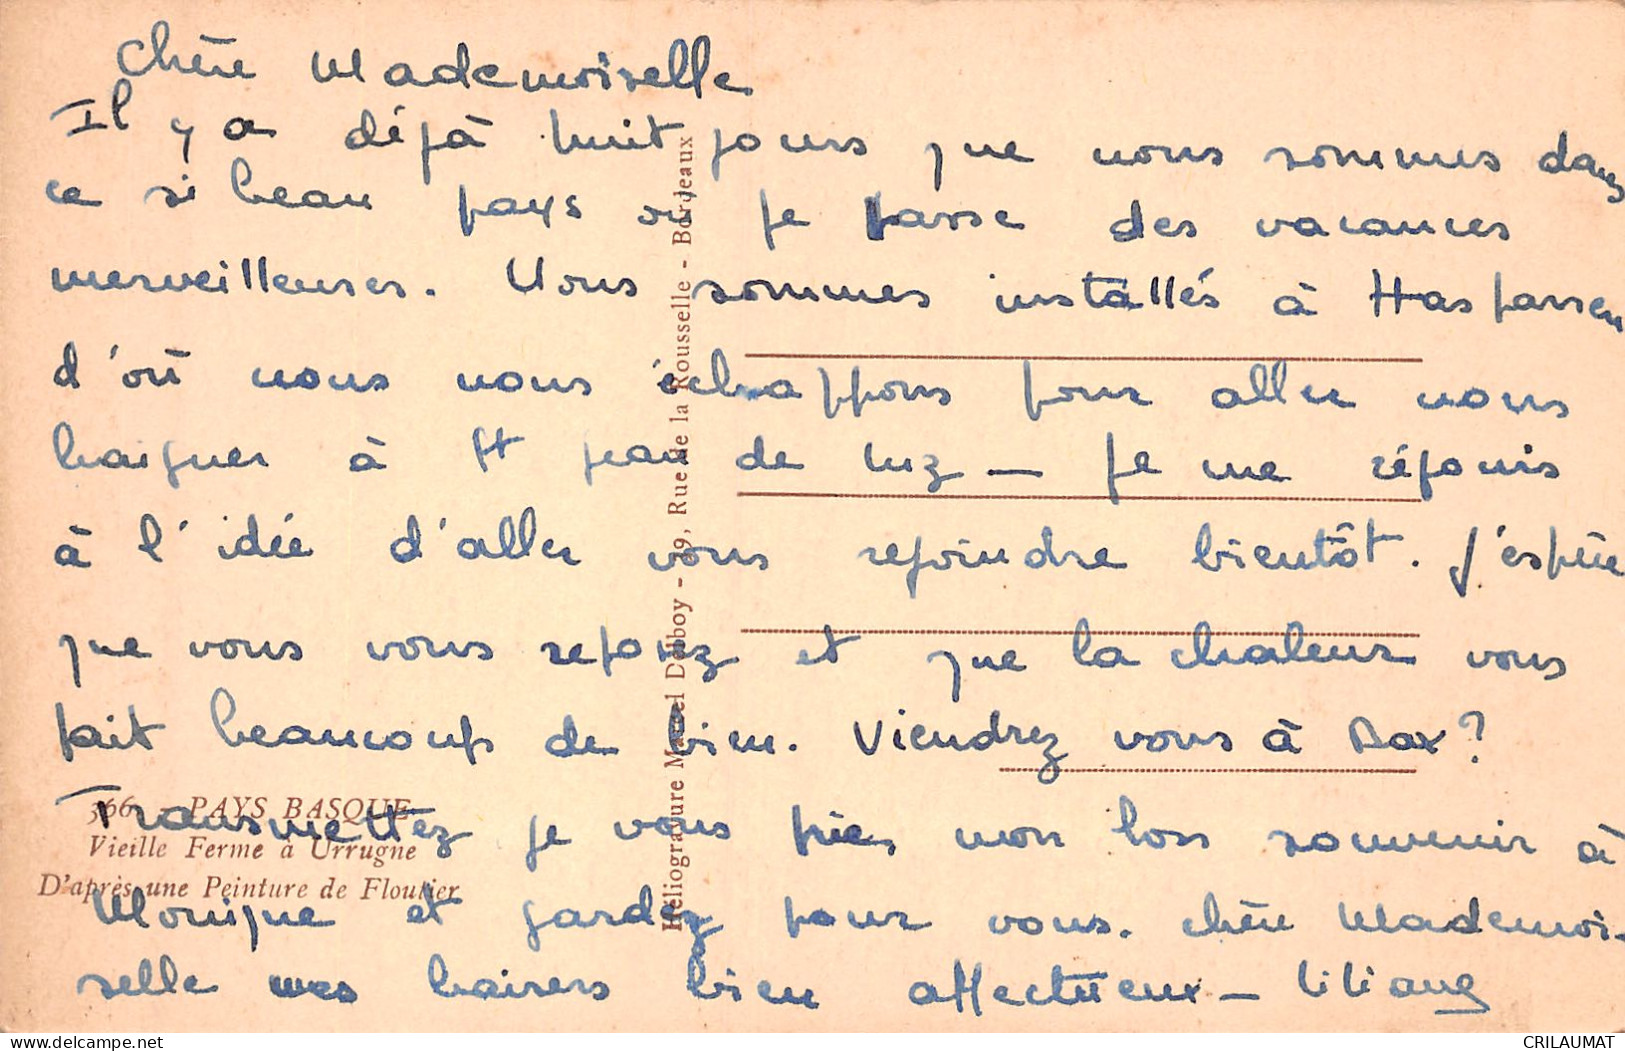 Chère Mademoiselle
Il y a déjà huit jours que nous sommes dans
ce si beau pays où je passe des vacances
merveilleuses. Nous sommes installés à Hasparren
d'où nous nous échappons pour aller nous
baigner à St Jean de Luz — Je me réjouis
à l'idée d'aller vous rejoindre bientôt. J'espère
que vous vous reposez et que la chaleur vous
fait beaucoup de bien. Viendrez vous à Dax?
Transmettez je vous prie, mon bon souvenir à
Monique et gardez pour vous. chère Mademoi-
selle mes baisers bien affectueux — Liliane
366 - PAYS BASQUE
Vieille Ferme à Urrugne
D'après une Peinture de Floutier
Héliogravure Marcel Delboy - 39, Rue de la Rousselle - Bordeaux
delcampe.net
CRILAUMAT